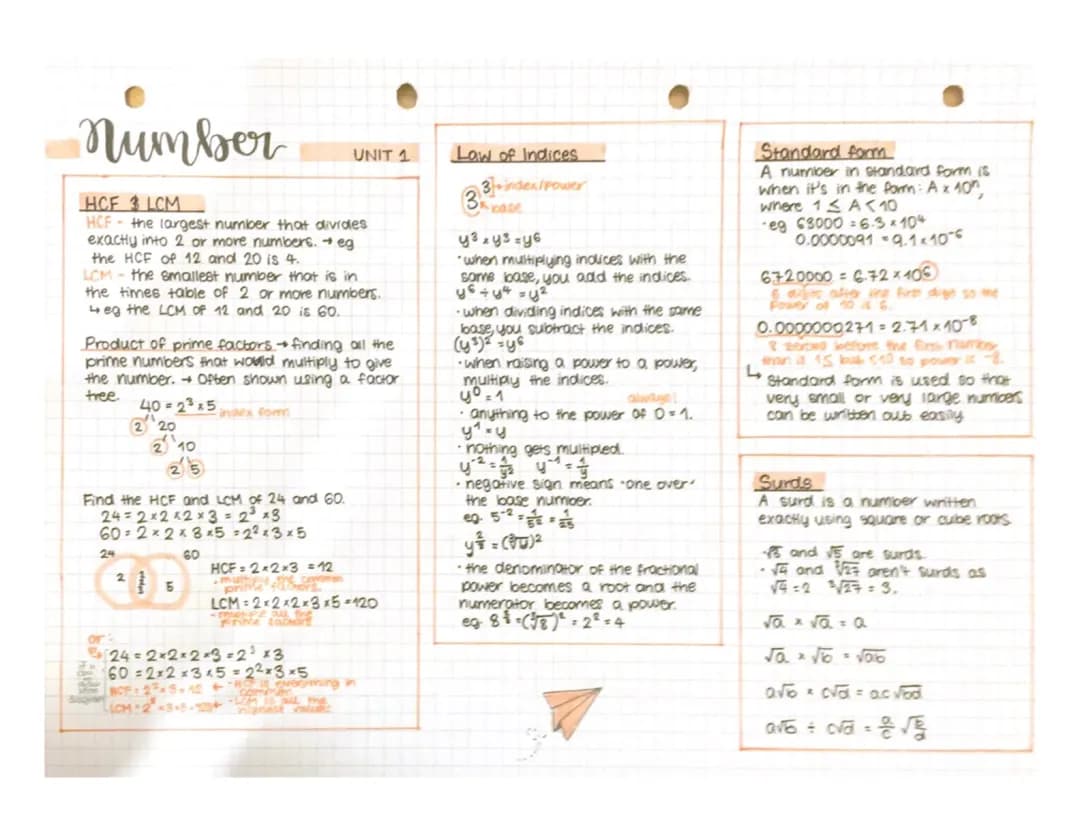 number
UNIT 1
HCF & LCM
HCF - the largest number that divides
exactly into 2 or more numbers. → eg
the HCF of 12 and 20 is 4.
LCM - the smallest number that is in
the times table of 2 or more numbers.
↳ eg the LCM of 12 and 20 is 60.
Product of prime factors → finding all the
prime numbers that would multiply to give
the number. → Often shown using a factor
tree.
40 = 2³ × 5 index form
2 20
2 10
2 5
Find the HCF and LCM of 24 and 60.
24 = 2 × 2 × 2 × 3 = 2³ × 3
60 = 2 × 2 × 3 × 5 = 2² × 3 × 5
24 60
2 2 2 3 5
HCF = 2 × 2 × 3 = 12
· multiply the common
prime factors.
LCM = 2 × 2 × 2 × 3 × 5 = 120
- multiply all the
prime factors
or:
24 = 2×2×2×3 = 2³ × 3
60 = 2×2×3×5 = 2²×3×5
HCF = 2² × 3 = 12 ← - HCF is everything in
common
LCM = 2³ × 3 × 5 = 120 ← - LCM is all the
highest values
diagram
Law of Indices
3³ → index/power
base
y³ × y³ = y⁶
· when multiplying indices with the
same base, you add the indices.
y⁶ ÷ y⁴ = y²
· when dividing indices with the same
base, you subtract the indices.
(y³)² = y⁶
· when raising a power to a power,
multiply the indices.
y⁰ = 1 always!
· anything to the power of 0 = 1.
y¹ = y
· nothing gets multiplied.
y⁻² = 1/y² y⁻¹ = 1/y
· negative sign means "one over"
the base number.
eg. 5⁻² = 1/5² = 1/25
y^⅔ = (∛y)²
· the denominator of the fractional
power becomes a root and the
numerator becomes a power.
eg. 8^⅔ = (∛8)² = 2² = 4
Standard form
A number in standard form is
when it's in the form: A × 10ⁿ,
where 1 ≤ A < 10
· eg 63000 = 6.3 × 10⁴
0.0000091 = 9.1 × 10⁻⁶
6720000 = 6.72 × 10⁶
6 digits after the first digit so the
power of 10 is 6.
0.0000000271 = 2.71 × 10⁻⁸
8 zeros before the first number
than is 1≤ but <10 so power is -8.
↳ Standard form is used so that
very small or very large numbers
can be written out easily
Surds
A surd is a number written
exactly using square or cube roots.
· √3 and √5 are surds.
· √4 and ∛27 aren't surds as
√4 = 2 ∛27 = 3.
√a × √a = a
√a × √b = √ab
a√b × c√d = ac√bd
a√b ÷ c√d = a/c √b/d